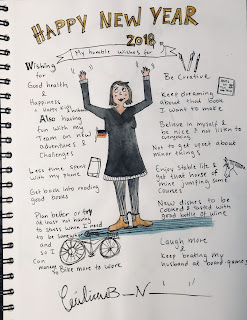 HAPPY NEW YEAR
2018
My humble wishes for
Wishing
for
Good health
&
Happiness
Happy kids
Also having
fun with my
Team on new
adventures &
Challenges
Less time spend
with my phone
Get back into reading
good books
Plan better or try
at least not having
to stress when I need
to be somewhere
and so I
Can
manage to Bike more to work
Be Creative
Keep dreaming
about that book
I want to make
Believe in myself &
be nice & not listen to
Not to get upset about
minor things
Enjoy stable life &
get that horse of
mine jumping some
Courses
New dishes to be
Cooked & tasted with
good bottle of wine
Laugh more
&
Keep beating my
husband at board games